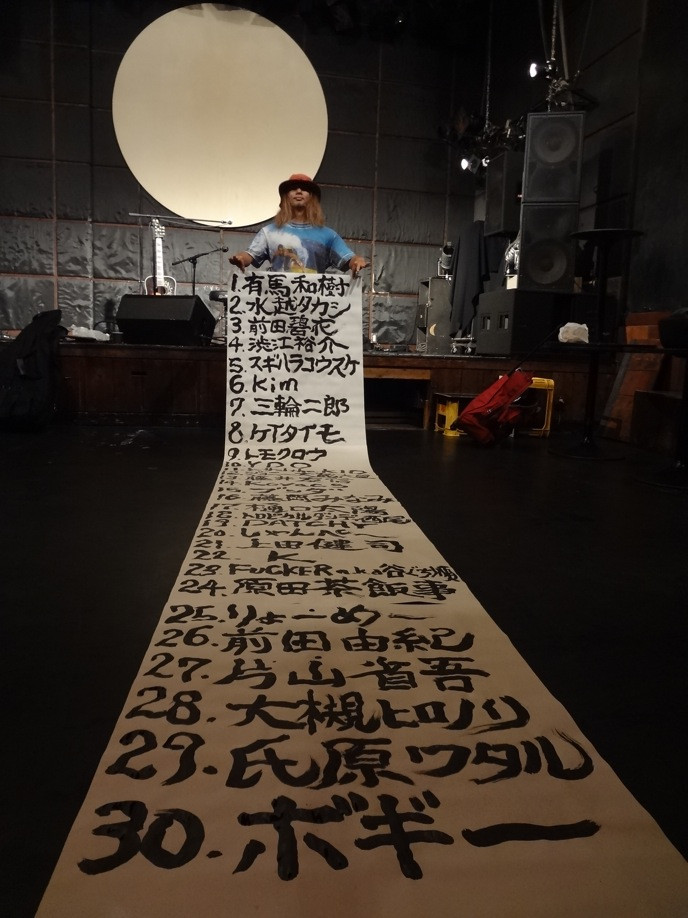 1.有馬和樹
2.水越タカシ
3.前田
4.渋江裕介
5.スギハラコウスケ
6.Kim
7.三輪二郎
8.ケイタイモ
9.トモクロウ
10.YDO
16.藤岡みなみ
17.樋口太陽
19.DATCHY酒店
20.しゃんぺ〜
21.上田健司
22.K
23.FUCKER a.k.a谷ぐち順
24.原田茶飯事
25.りょーめー
26.前田由紀
27.片山省吾
28.大槻ヒロノリ
29.氏原ワタル
30.ボギー